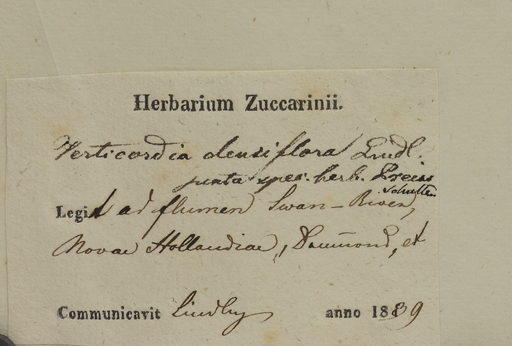 Herbarium Zuccarinii.
Verticordia densiflora Lindl.
juxta spec. herb. Preiss
Schulten
Legit ad flumen Swan-River,
Novae Hollandiae, Drummond, et
Communicavit Lindley anno 1839